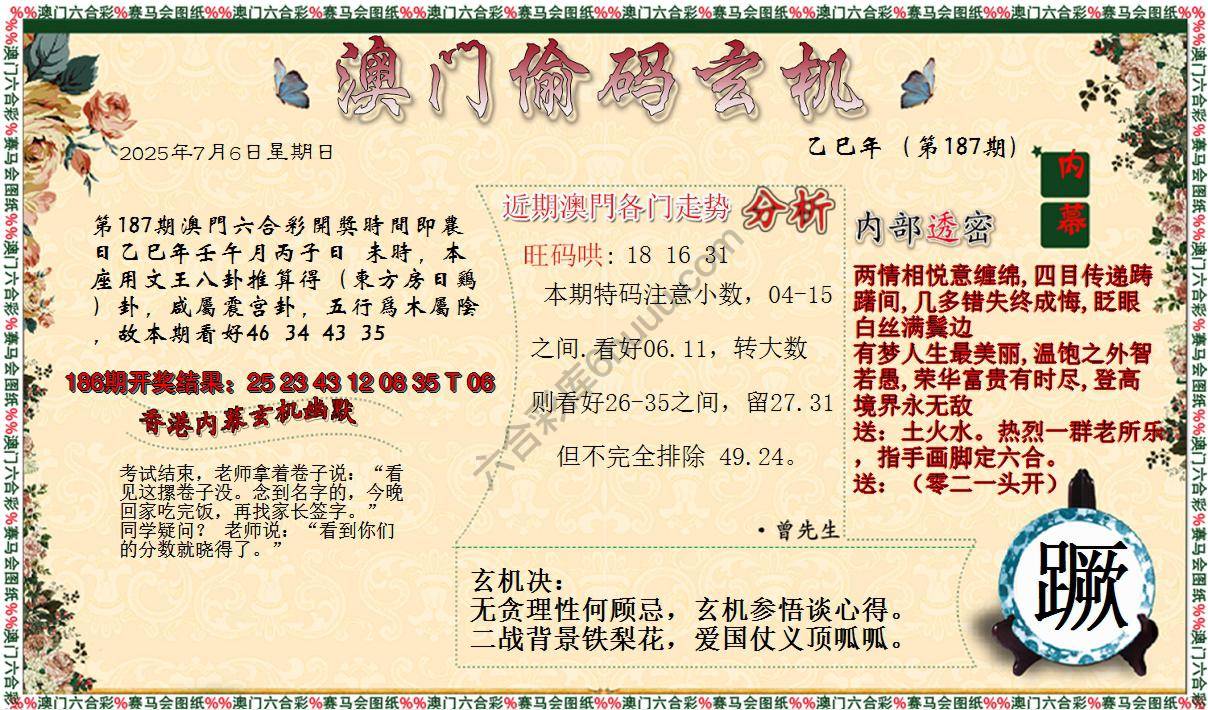 %%澳门六合彩%赛马会图纸%%澳门六合彩%赛马会图纸%%澳门六合彩%赛马会图纸%%澳门六合彩%赛马会图纸%%澳门六合彩%赛马会图纸%%澳门六合彩%赛马会图纸%%
澳门偷码玄机
2025年7月6日星期日
乙巳年（第187期）
内幕
第187期澳門六合彩開獎時間即農
日乙巳年壬午月丙子日 未時，本
座用文王八卦推算得（東方房日鷄
）卦，咸屬震宫卦，五行爲木屬陰
，故本期看好46 34 43 35
186期开奖结果：25 23 43 12 08 35 T 06
香港内幕玄机幽默
考试结束，老师拿着卷子说：“看
见这摞卷子没。念到名字的，今晚
回家吃完饭，再找家长签字。”
同学疑问？ 老师说：“看到你们
的分数就晓得了。”
近期澳門各门走势 分析
旺码哄：18 16 31
本期特码注意小数，04-15
之间.看好06.11，转大数
则看好26-35之间，留27.31
但不完全排除 49.24。
·曾先生
内部透密
两情相悦意缠绵,四目传递踌
躇间,几多错失终成悔,眨眼
白丝满鬓边
有梦人生最美丽,温饱之外智
若愚,荣华富贵有时尽,登高
境界永无敌
送：土火水。热烈一群老所乐
，指手画脚定六合。
送：（零二一头开）
玄机决：
无贪理性何顾忌，玄机参悟谈心得。
二战背景铁梨花，爱国仗义顶呱呱。
蹶